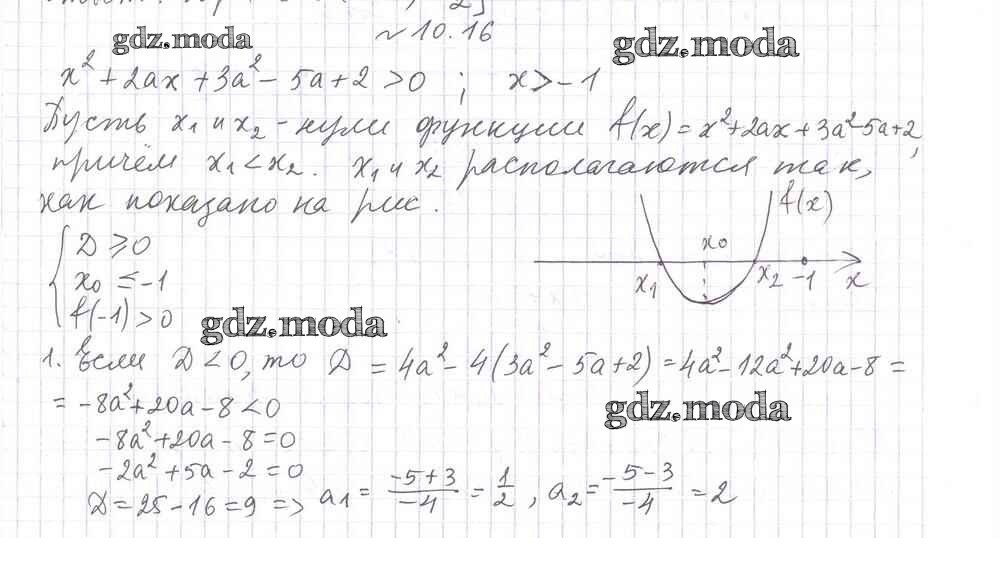 №10.16
gdz.moda
gdz.moda
x² + 2ax + 3a² - 5a + 2 > 0 ; x > -1
Пусть x₁ и x₂ - нули функции f(x) = x² + 2ax + 3a² - 5a + 2,
причём x₁ < x₂. x₁ и x₂ располагаются так,
как показано на рис.
f(x)
x₀
x₁
x₂
-1
x
{ D ≥ 0
x₀ ≤ -1
f(-1) > 0
gdz.moda
1. Если D < 0, то D = 4a² - 4(3a² - 5a + 2) = 4a² - 12a² + 20a - 8 =
= -8a² + 20a - 8 < 0
gdz.moda
-8a² + 20a - 8 = 0
-2a² + 5a - 2 = 0
D = 25 - 16 = 9 => a₁ = (-5+3)/(-4) = 1/2 , a₂ = (-5-3)/(-4) = 2